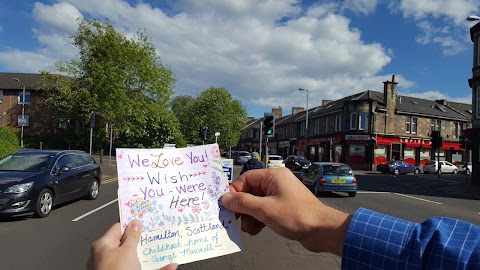 We LOVE You!
Wish
- You - Were -
Here!
Hamilton, Scotland
Childhood home of
- George Maxwell -